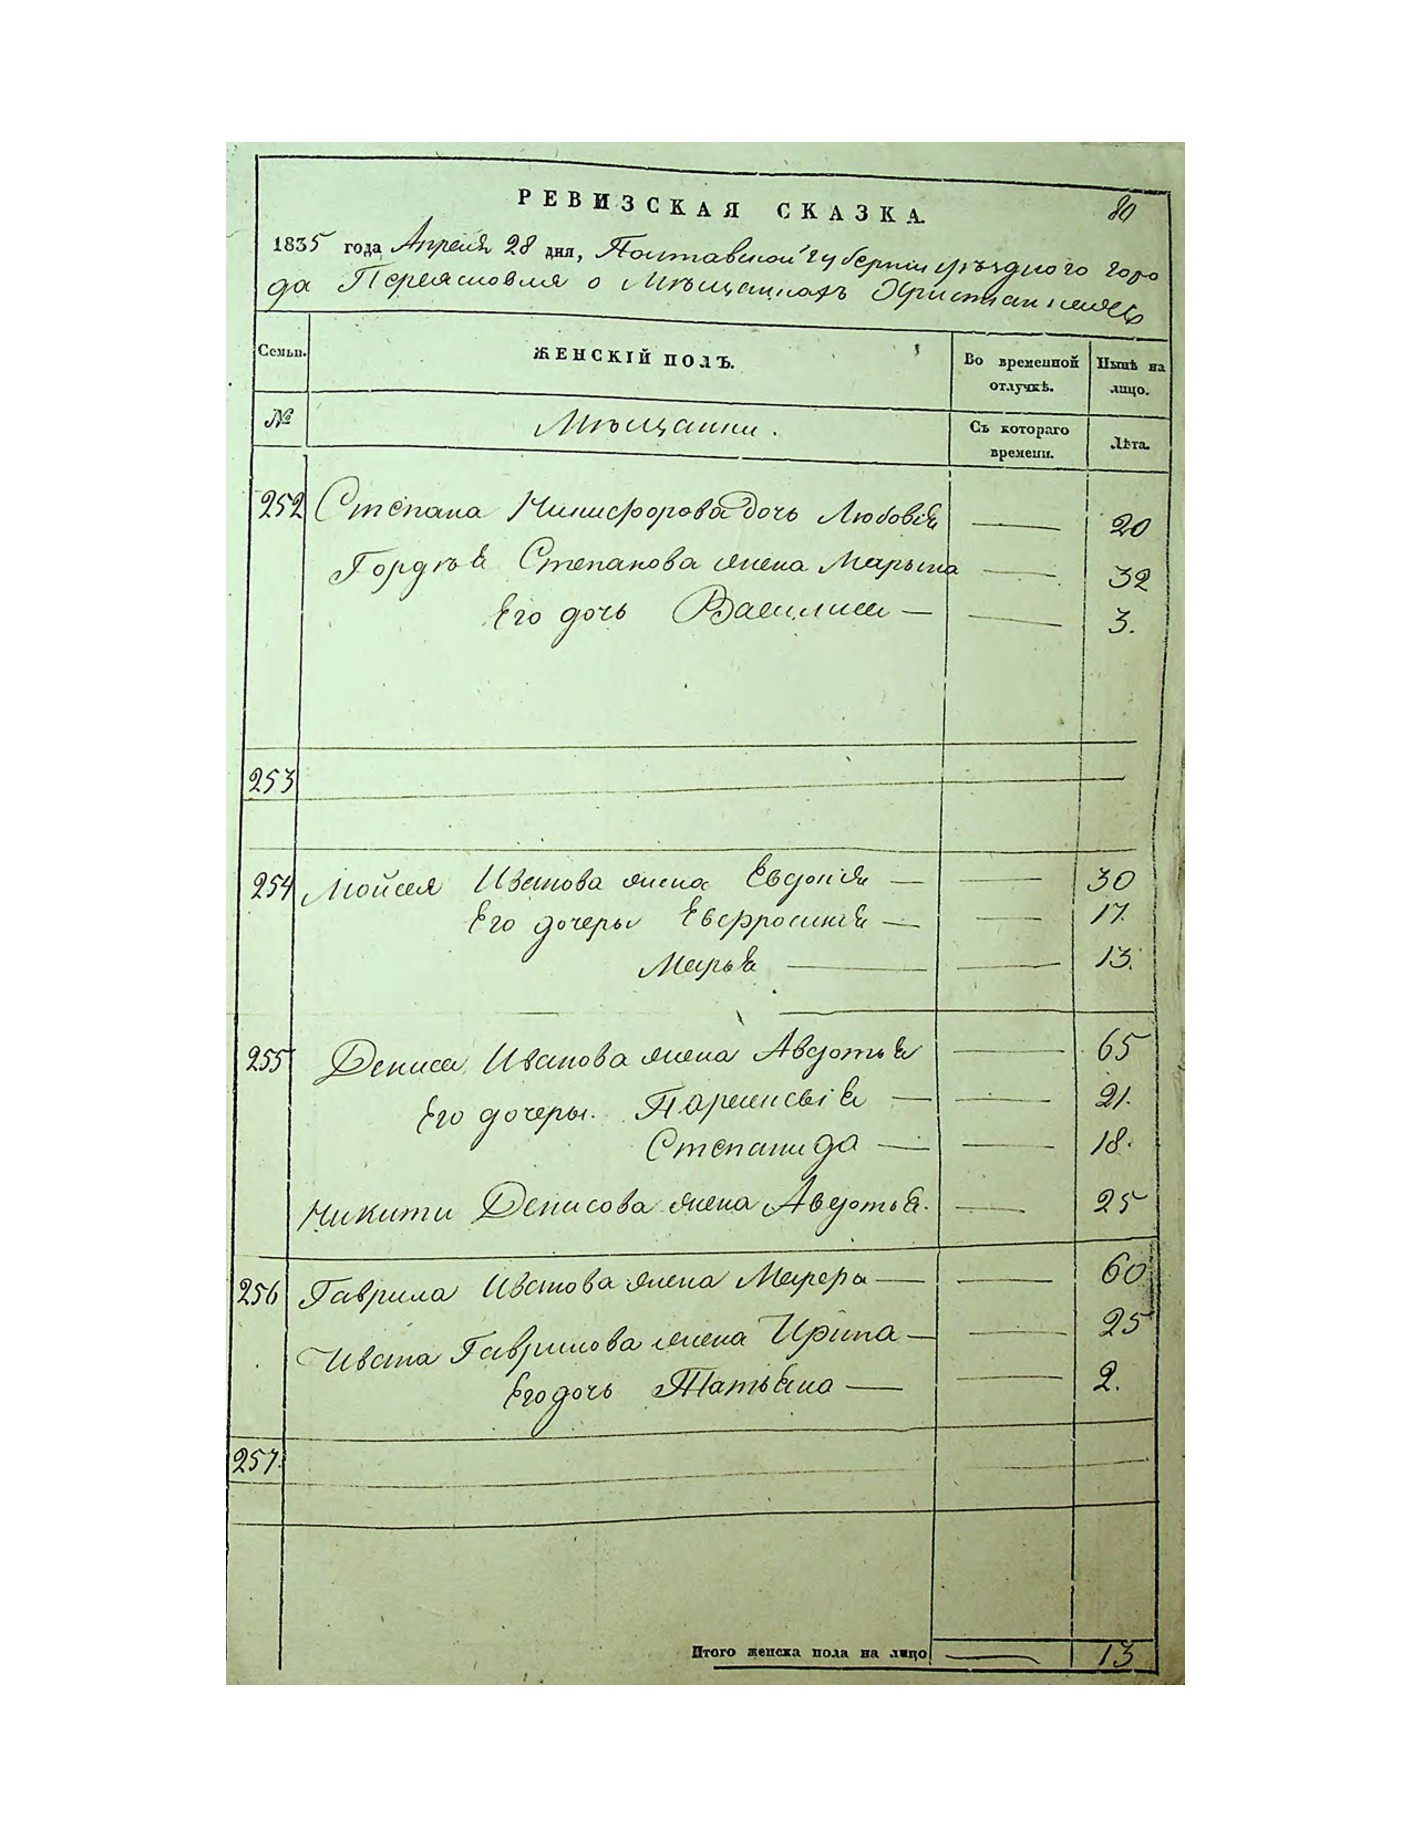 РЕВИЗСКАЯ СКАЗКА.
80
1835 года Апреля 28 дня, Полтавской губернии уѣзднаго горо
да Переяславля о Мѣщанахъ Христианахъ
Семьи. ЖЕНСКІЙ ПОЛЪ. Во временной отлучкѣ. Нынѣ на лицо.
№ Мѣщанки. Съ котораго времени. Лѣта.
252 Степана Никифорова дочь Любовія — 20
Гордѣя Степанова жена Марьина — 32
Его дочь Василиса — — 3.
253
254 Мойсея Иванова жена Евдокія — — 30
Его дочеры Евфросинія — — 17.
Марья — — 13.
255 Дениса Иванова жена Авдотья — 65
Его дочеры. Параскевія — — 21.
Степанида — — 18.
Никити Денисова жена Авдотья. — 25
256 Гаврила Иванова жена Марфа — — 60
Ивана Гаврилова жена Ирина — — 25
Его дочь Татьяна — — 2.
257.
Итого женска пола на лицо — 13